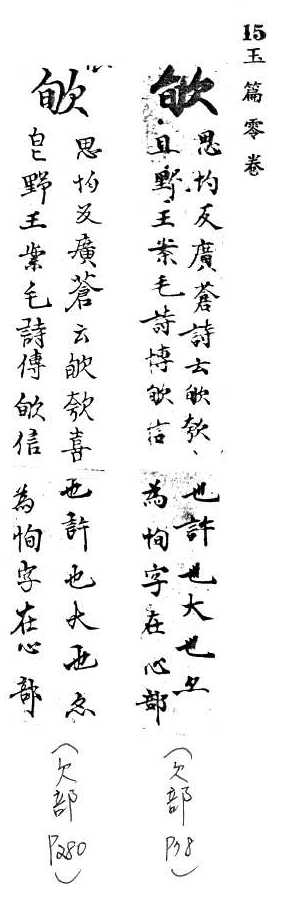 15玉篇零卷
思均反廣蒼詩云
也許也大也
且野王案毛詩博
為恂字在心部
(欠部P78)
思均反廣蒼云喜
也許也大也
野王案毛詩傳信
為恂字在心部
(欠部P280)